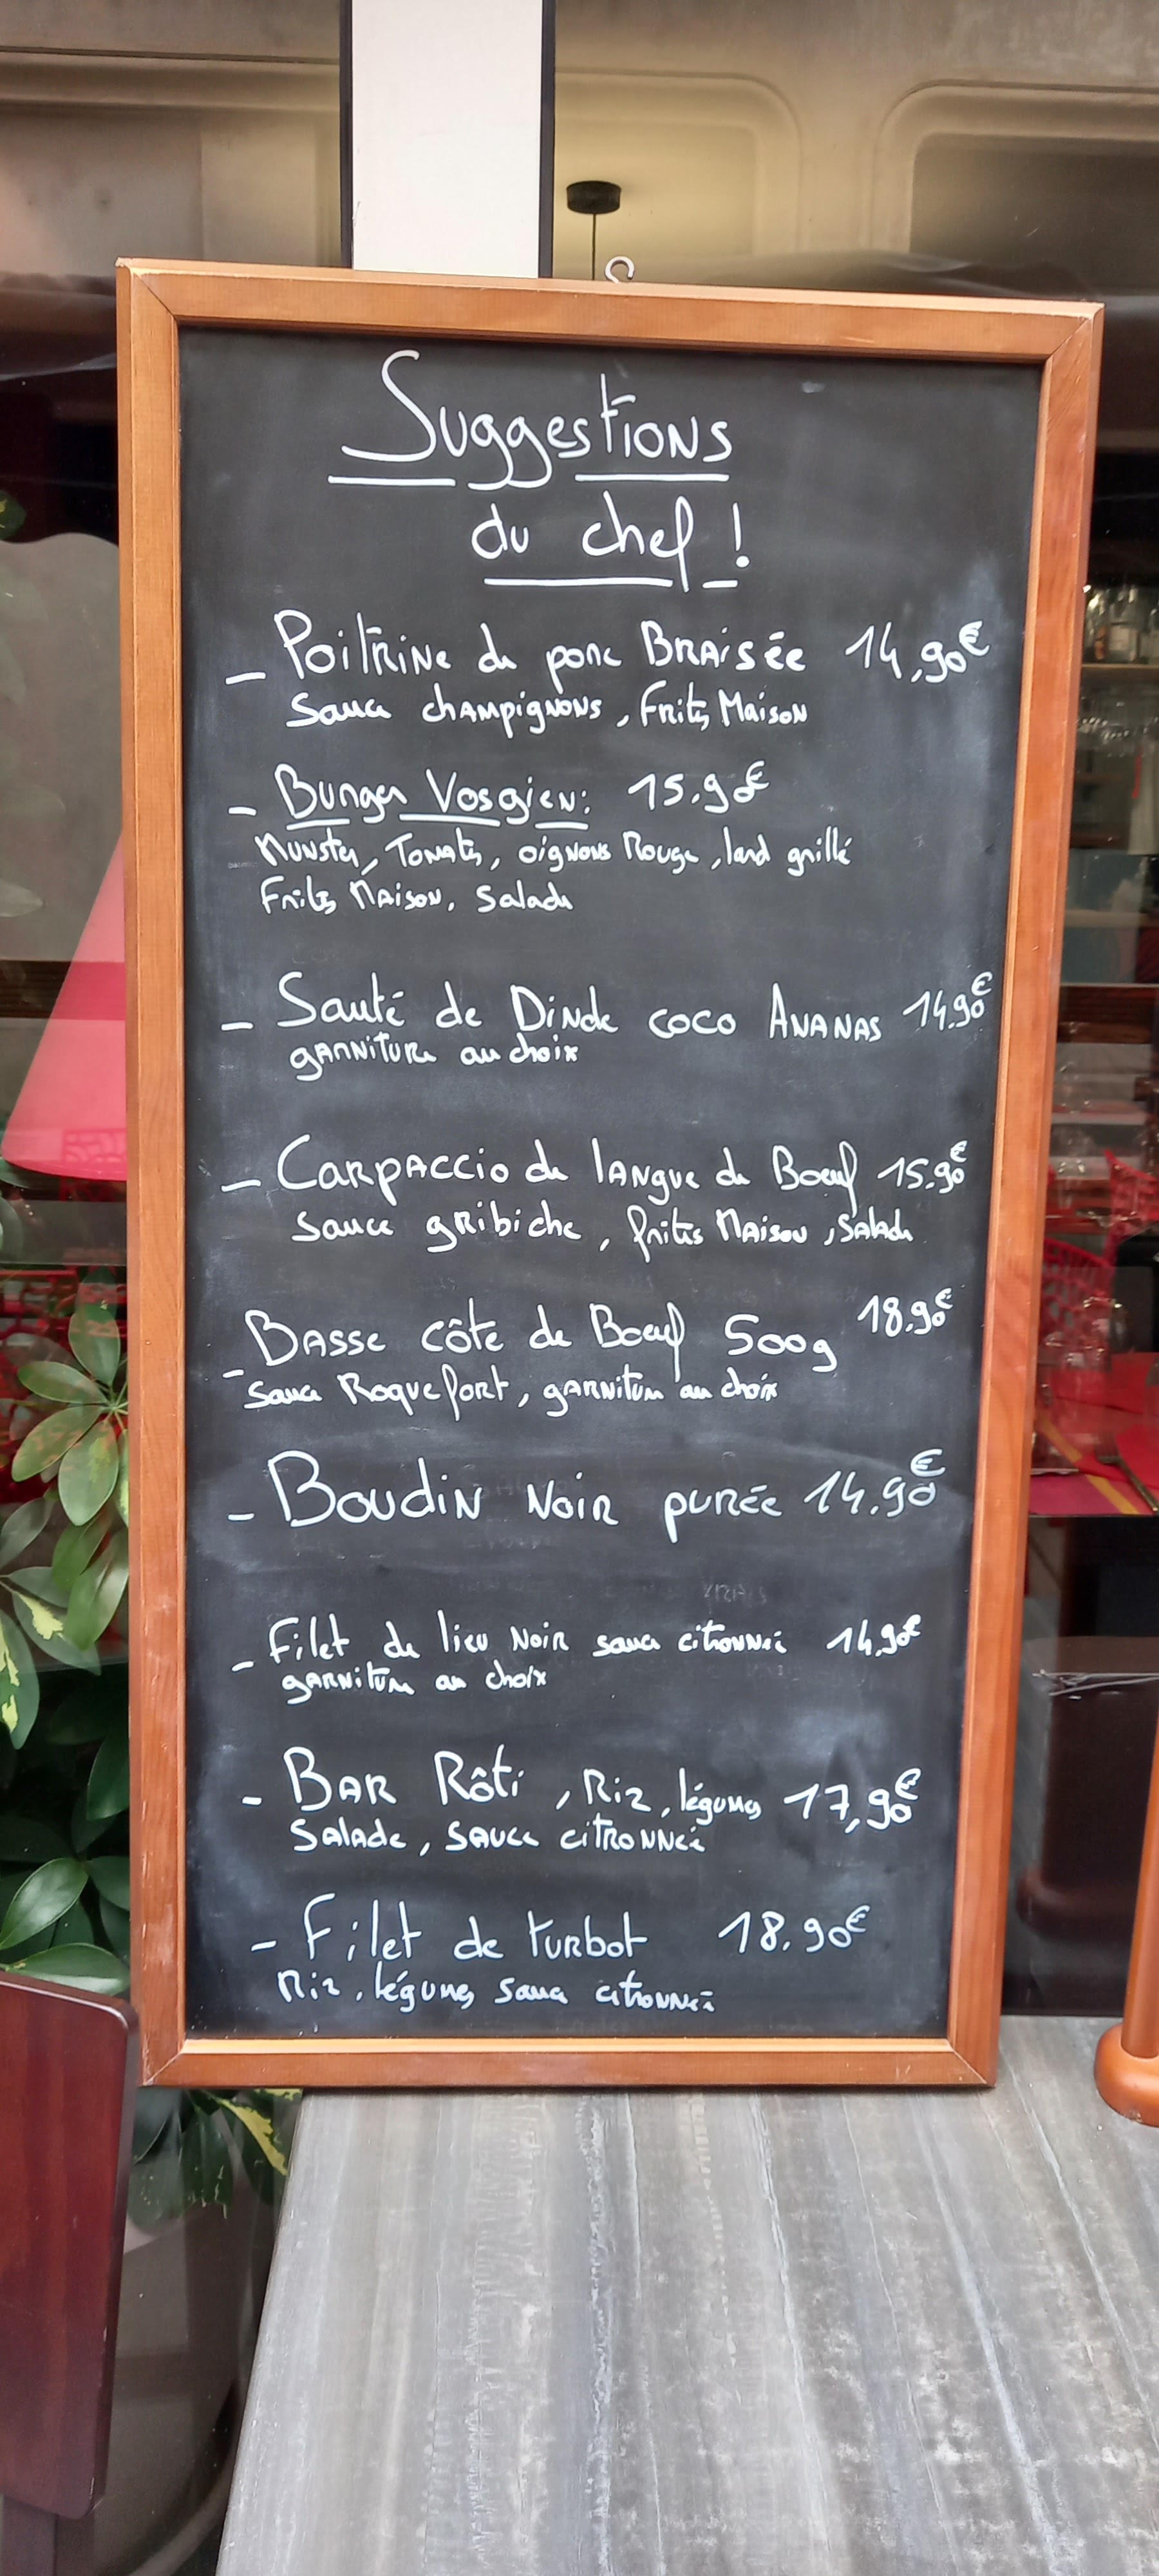 Suggestions
du chef !
- Poitrine de porc Braisée 14,90€
Sauce champignons, Frites Maison
- Burger Vosgien: 15.90€
Munster, Tomates, oignons Rouge, lard grillé
Frites Maison, Salade
- Sauté de Dinde coco Ananas 14.90€
garniture au choix
- Carpaccio de langue de Boeuf 15.90€
sauce gribiche, frites Maison, Salade
- Basse côte de Boeuf 500g 18.90€
sauce Roquefort, garniture au choix
- Boudin Noir purée 14.90€
- Filet de lieu Noir sauce citronnée 14.90€
garniture au choix
- Bar Rôti, Riz, légumes 17,90€
Salade, sauce citronnée
- Filet de turbot 18.90€
Riz, légumes sauce citronnée